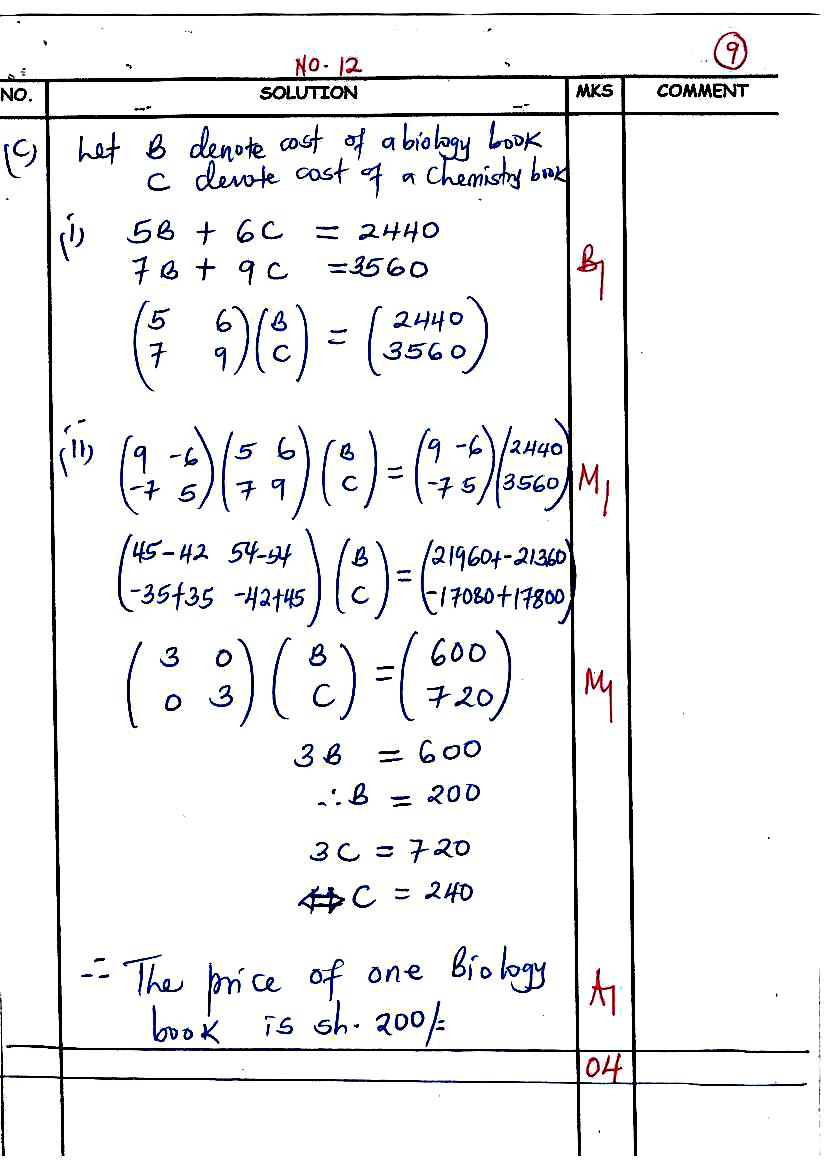 9
NO. 12
NO. SOLUTION MKS COMMENT
(C) Let B denote cost of a biology book
C denote cost of a Chemistry book
(i) 5B + 6C = 2440
7B + 9C = 3560 B1
(5 6) (B) = (2440)
(7 9) (C) (3560)
(ii) (9 -6) (5 6) (B) = (9 -6) (2440)
(-7 5) (7 9) (C) (-7 5) (3560) M1
(45-42 54-54) (B) = (21960+-21360)
(-35+35 -42+45) (C) (-17080+17800)
(3 0) (B) = (600)
(0 3) (C) (720) M1
3B = 600
∴ B = 200
3C = 720
⇔ C = 240
∴ The price of one Biology
book is sh. 200/= A1
04